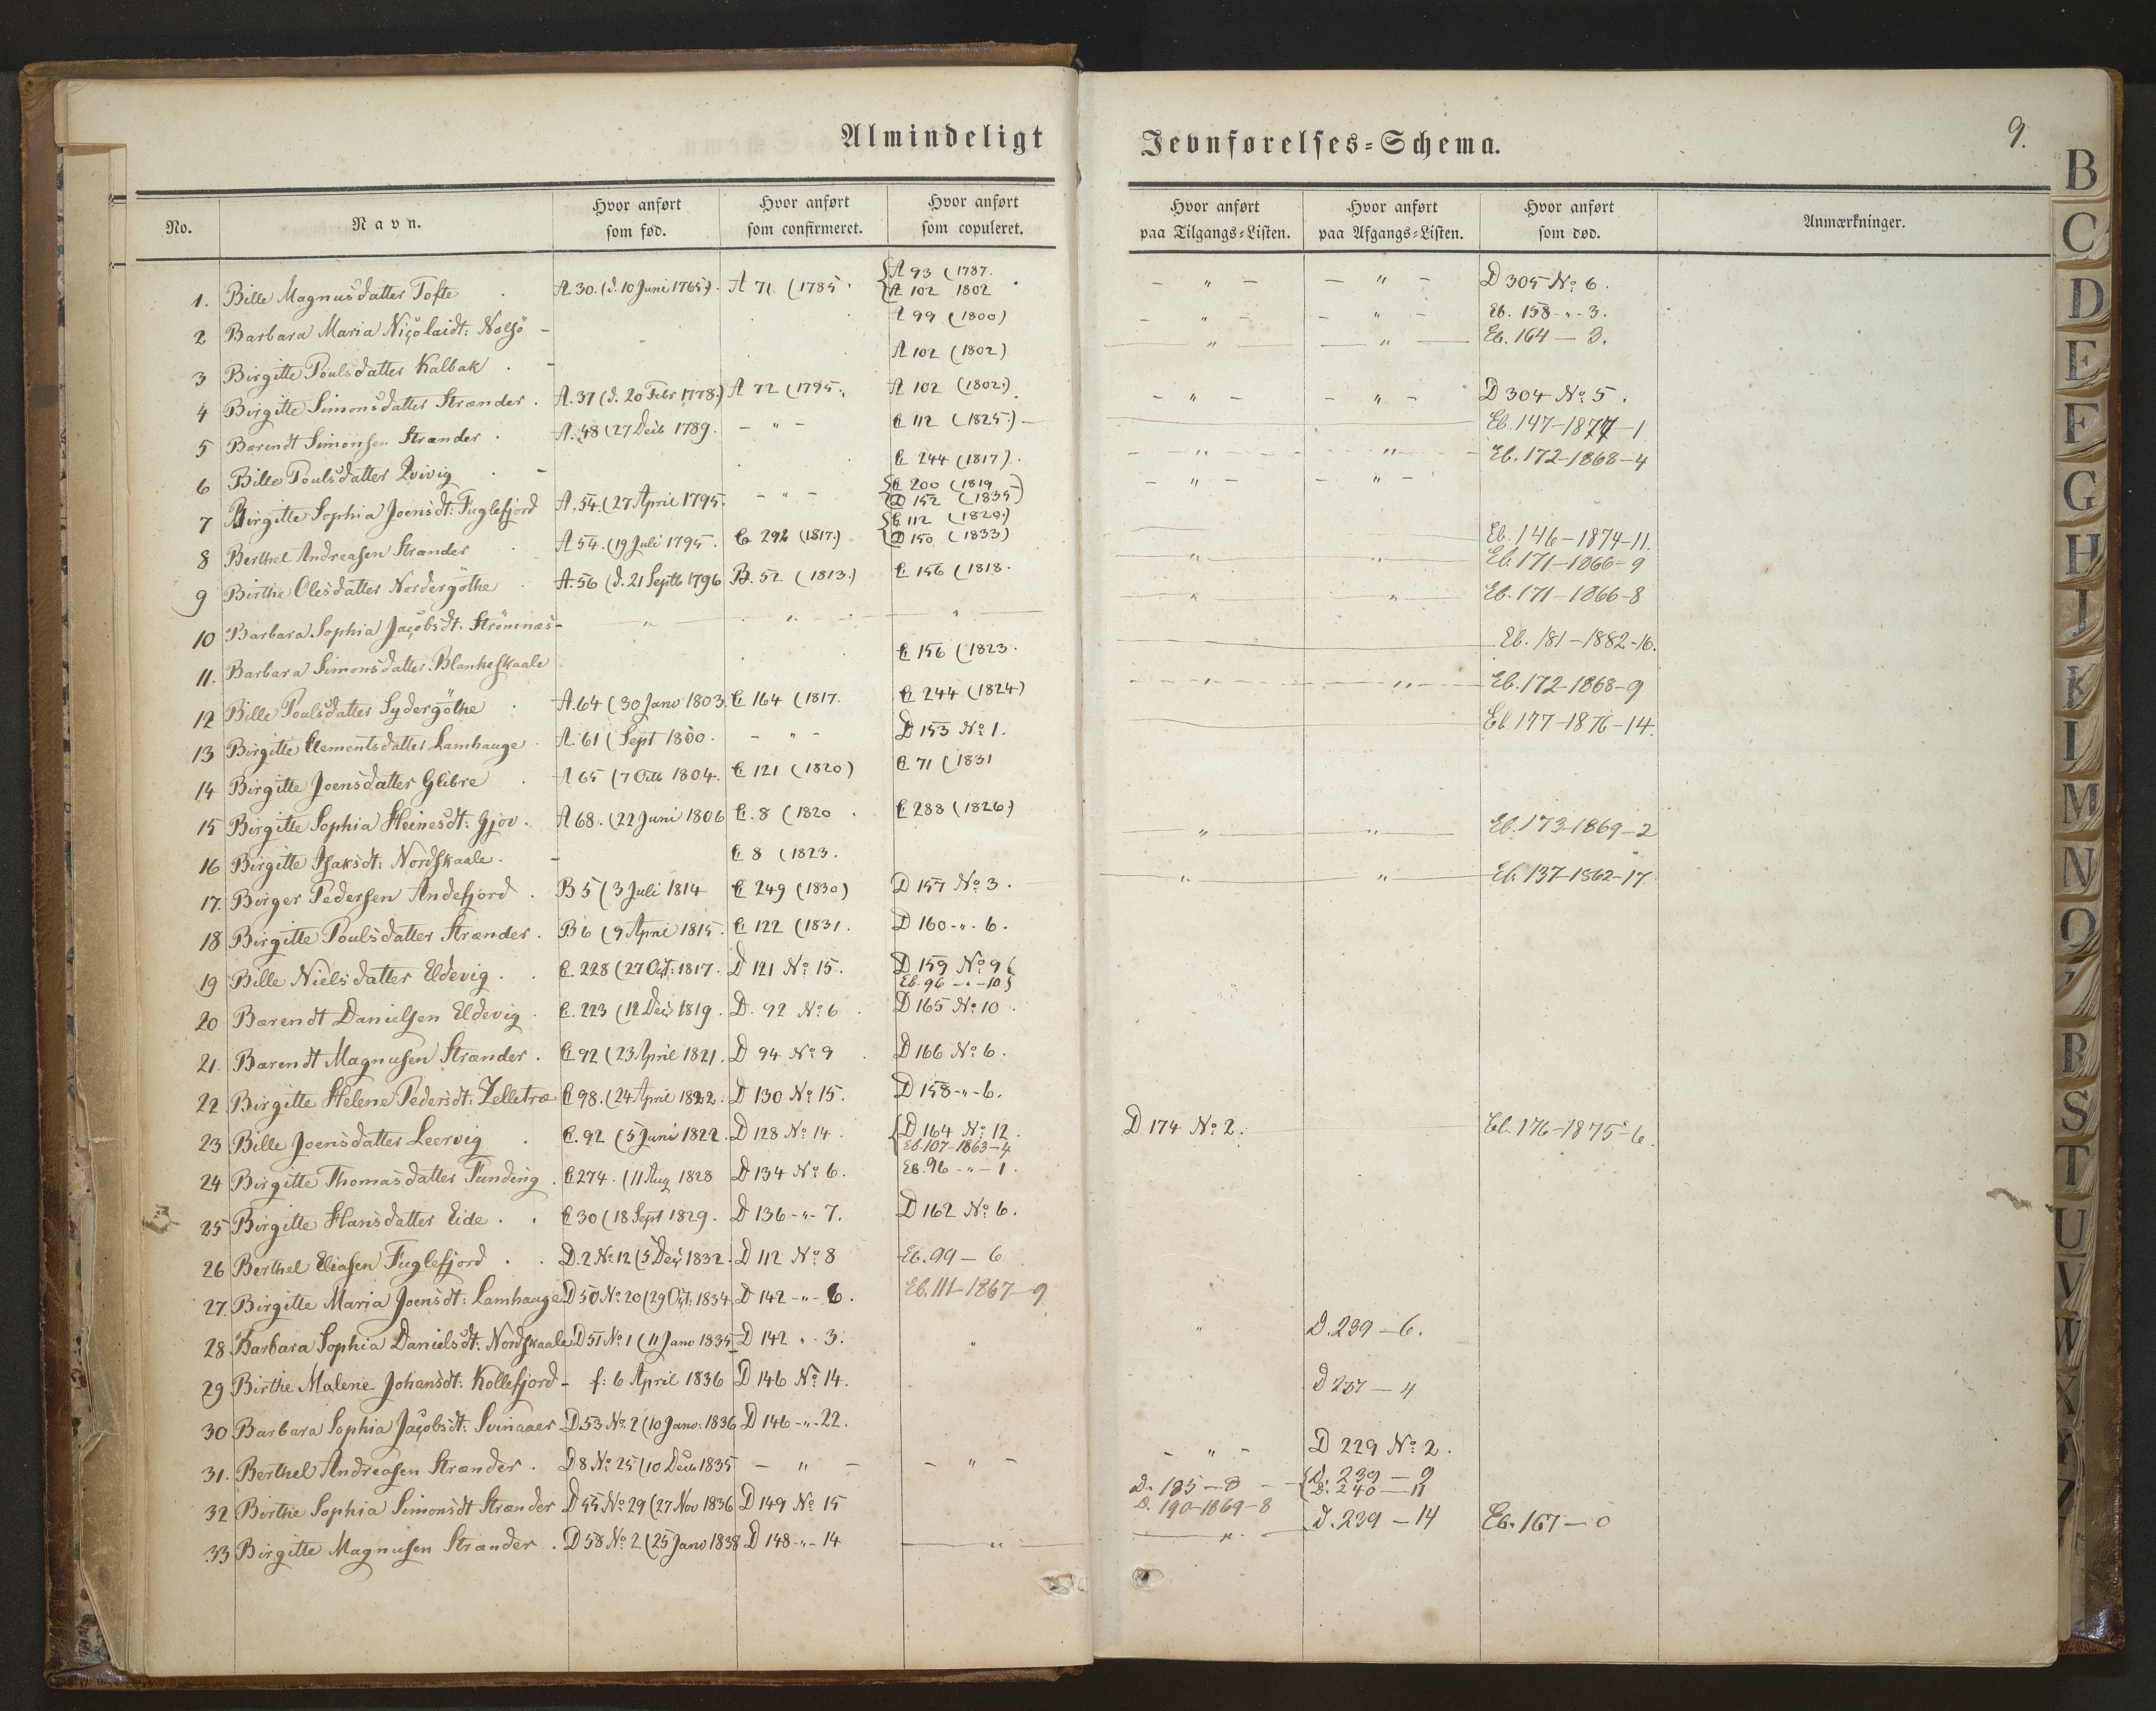 Almindeligt
Jevnførelses=Schema.
9.
No.
Navn.
Hvor anført
som fød.
Hvor anført
som confirmeret.
Hvor anført
som copuleret.
Hvor anført
paa Tilgangs=Listen.
Hvor anført
paa Afgangs=Listen.
Hvor anført
som død.
Anmærkninger.
1. Bille Magnusdatter Tofte . A.30. (d. 10 Juni 1765). A 71 (1785. {A 93 (1787. {A 102 1802 - " - - " - D 305 No 6.
2 Barbara Maria Nicolaidt: Nolsö - A 99 (1800) - " - - " - Eb. 158-"-3.
3 Birgitte Poulsdatter Kalbak . - A 102 (1802) " " Eb. 164 - 3.
4 Birgitte Simonsdatter Strænder . A.37 (d. 20 Febr 1778.) A 72 (1795. A 102 (1802.) - " - - " - D 304 No 5.
5 Bærendt Simonsen Strænder . A.48 (27 Decb 1789. - " - C 112 (1825.) - Eb. 147-1877-1
6 Bille Poulsdatter Qvivig . - C 244 (1817). - " - - " - Eb. 172-1868-4
7 Birgitte Sophia Joensdt: Fuglefjord A.54. (27 April 1795. - " - {C 200 (1819 {D 152 (1835) - " - - " -
8 Berthel Andreasen Strænder . A 54. (19 Juli 1795. C 292 (1817.) {C 112 (1820.) {D 150 (1833) Eb. 146-1874-11.
9 Birthe Olesdatter Nordergöthe A.56 (d. 21 Septb 1796 B. 52 (1813.) C 156 (1818. " " Eb. 171-1866-9
10 Barbara Sophia Jacobsdt. Strömnæs - " " " " " Eb. 171-1866-8
11. Barbara Simonsdatter Blankeskaale C 156 (1823. Eb. 181-1882-16.
12 Bille Poulsdatter Sydergöthe . A.64 (30 Janv 1803. C 164 (1817. C 244 (1824) " " Eb. 172-1868-9
13 Birgitte Clementsdatter Lamhauge . A. 61 (Sept 1800. - " - D 153 No 1. Eb 177-1876-14.
14 Birgitte Joensdatter Glibre . A 65 (7 Octb 1804. C 121 (1820) C 71 (1831
15 Birgitte Sophia Heinesdt: Gjov . A 68. (22 Juni 1806 C. 8 (1820 . C 288 (1826.) " " Eb. 173-1869-2
16 Birgitte Isaksdt: Nordskaale . - C 8 (1823. " " Eb. 137-1862-17.
17. Birger Pedersen Andefjord . B 5 (3 Juli 1814 C 249 (1830) D 157 No 3.
18 Birgitte Poulsdatter Strænder . B 6 (9 April 1815. C 122 (1831. D 160-"-6.
19 Bille Nielsdatter Eldevig . . C. 228 (27 Oct: 1817. D 121 No 15. D 159 No 9 Eb. 96 - " - 10}
20 Bærendt Danielsen Eldevig . C. 223 (12 Dec 1819. D. 92 No 6 . D 165 No 10 .
21. Bærendt Magnusen Strænder . C 92 (23 April 1821. D 94 No 9 . D 166 No 6.
22. Birgitte Helene Pedersdt: Zelletræ C 98. (24 April 1822. D 130 No 15. D 158-"-6.
23 Bille Joensdatter Leervig . C. 92 (5 Juni 1822. D 128 No 14. {D 164 No 12. {Eb. 107-1863-4 D 174 No 2. Eb. 176-1875-6.
24 Birgitte Thomasdatter Funding . C 274. (11 Aug 1828 D 134 No 6. Eb. 96 - " - 1.
25 Birgitte Hansdatter Eide . . C 30 (18 Sept 1829. D 136-"-7. D 162 No 6.
26 Berthel Eliasen Fuglefjord . . D. 2 No 12 (5 Dec 1832. D 112 No 8 Eb. 99 - 6
27. Birgitte Maria Joensdt: Lamhauge D 50 No 20 (29 Oct: 1834. D 142-"-6. Eb. 111-1867-9
28 Barbara Sophia Danielsdt: Nordskaale D 51 No 1 (11 Janv 1835 D 142 " 3. " " D. 239 - 6.
29 Birthe Malene Johansdt: Kollefjord - f: 6 April 1836 D 146 No 14. - D 237 - 4
30 Barbara Sophia Jacobsdt: Svinaaer D.53 No. 2 (10 Janv. 1836 D 146-"-22.
31. Berthel Andreasen Strænder . D 8 No 25 (10 Decb 1835 - " - - " - - " - D 229 No 2.
32 Birthe Sophia Simonsdt Strænder D 55 No 29 (27 Nov 1836 D 149 No 15 D. 185-8 - D. 190-1869-8 {D. 239 - 9 {D. 240 - 11
33 Birgitte Magnusen Strænder . D 58 No 2 (25 Janv 1838 D 148-"-14 " " D. 239 - 14 Eb. 167 - 0
B
C
D
E
F
G
H
J
K
L
M
N
O
R
S
T
U
V
W
X
Y
Z